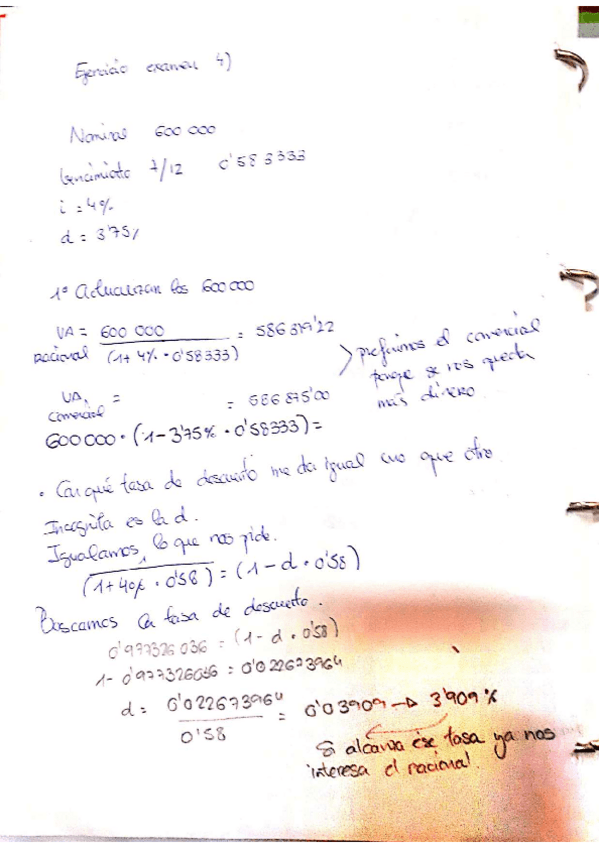 Ejercicio examen 4)
Nominal 600 000
Vencimiento 7/12 0'583333
i = 4%
d = 3'75%
1º Actualizan los 600 000
VA racional = 600 000 / (1 + 4% · 0'58333) = 586 319'22
VA, comercial = = 586 875'00
600 000 · (1 - 3'75% · 0'58333) =
> preferimos el comercial
porque se nos queda
más dinero
• Con qué tasa de descuento me da igual uno que otro.
Incógnita es la d.
Igualamos, lo que nos pide.
1 / (1 + 4% · 0'58) = (1 - d · 0'58)
Buscamos la tasa de descuento.
0'977326036 = (1 - d · 0'58)
1 - 0'977326036 = 0'022673964
d = 0'022673964 / 0'58 = 0'03909 → 3'909%
Si alcanza ese tasa ya nos
interesa el racional.